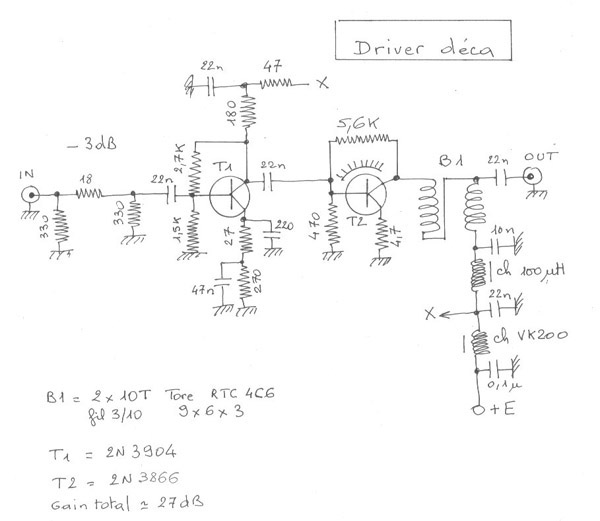 Driver déca
22n
47
X
180
5,6K
- 3dB
2,7K
T1
22n
B1
22n
OUT
IN
18
22n
T2
330
330
1,5K
27
220
470
4,7
10n
ch 100µH
47n
270
22n
X
ch VK200
0,1µ
+E
B1 = 2 x 10T Tore RTC 4C6
fil 3/10 9 x 6 x 3
T1 = 2N 3904
T2 = 2N 3866
Gain total ≃ 27dB